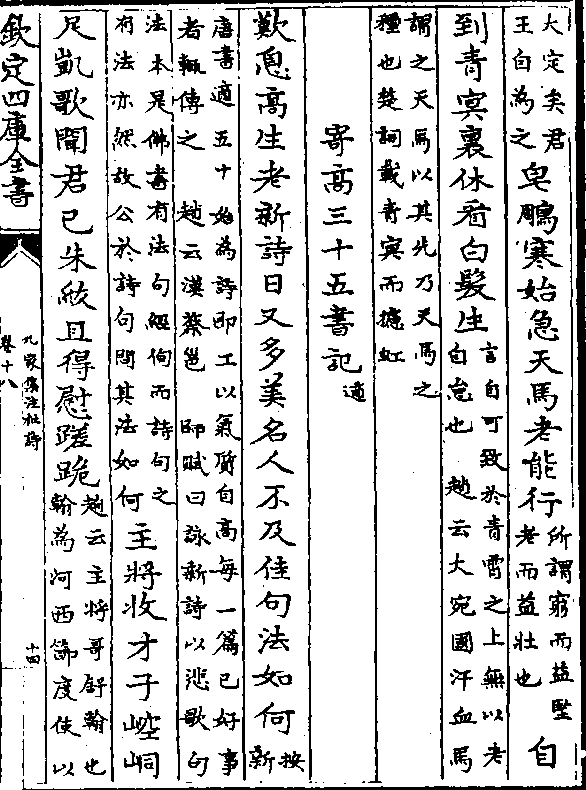 大定矣君
王自為之
皂鵰寒始急天馬老能行
所謂窮而益堅
老而益壯也
自
到青冥裏休看白髮生
言自可致於青霄之上無以老
自怠也 趙云大宛國汗血馬
謂之天馬以其先乃天馬之
種也楚詞載青冥而攄虹
寄高三十五書記
適
歎息高生老新詩日又多美名人不及佳句法如何
按新
唐書適五十始為詩即工以氣質自高每一篇已好事
者輒傳之 趙云漢蔡邕 師賦曰詠新詩以悲歌句
法本是佛書有法句經侚而詩句之
有法亦然故公於詩句問其法如何
主將收才子崆峒
足凱歌聞君已朱紱且得慰蹉跎
趙云主將哥舒翰也
翰為河西節度使以
欽定四庫全書
九家集注杜詩
卷十八
十四